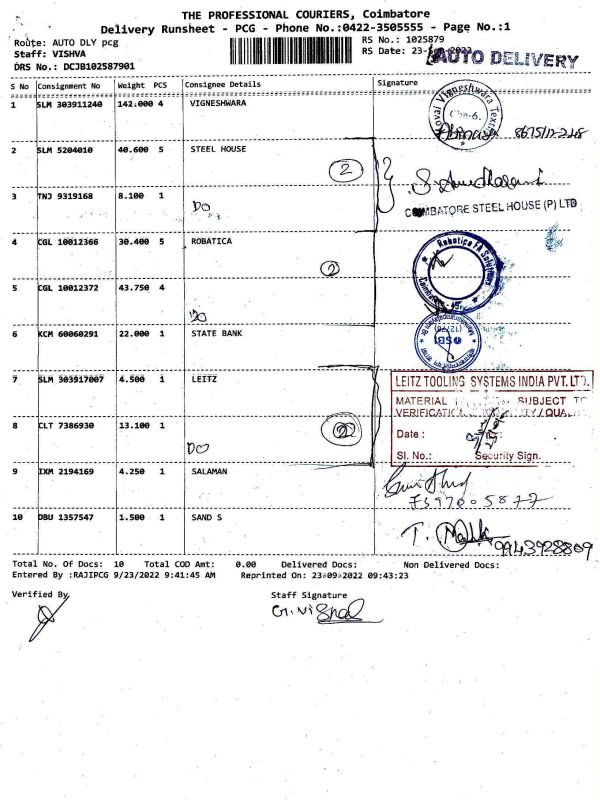 THE PROFESSIONAL COURIERS, Coimbatore
Delivery Runsheet - PCG - Phone No.:0422-3505555 - Page No.:1
Route: AUTO DLY pcg RS No.: 1025879
Staff: VISHVA RS Date: 23-Sep-2022
AUTO DELIVERY
DRS No.: DCJB102587901
S No Consignment No Weight PCS Consignee Details Signature
1 SLM 303911240 142.000 4 VIGNESHWARA
Cbe-6.
2 SLM 5204010 40.600 5 STEEL HOUSE
2
3 TNJ 9319168 8.100 1
DO
COIMBATORE STEEL HOUSE (P) LTD
4 CGL 10012366 30.400 5 ROBATICA
2
Robatica FA Solutions
5 CGL 10012372 43.750 4
DO
6 KCM 60060291 22.000 1 STATE BANK
SBI
7 SLM 303917007 4.500 1 LEITZ
LEITZ TOOLING SYSTEMS INDIA PVT. LTD.
MATERIAL SUBJECT TO
VERIFICATION
8 CLT 7386930 13.100 1
2
DO
Date :
Sl. No.: Security Sign.
9 IXM 2194169 4.250 1 SALAMAN
10 DBU 1357547 1.500 1 SAND S
9943928809
Total No. Of Docs: 10 Total COD Amt: 0.00 Delivered Docs: Non Delivered Docs:
Entered By :RAJIPCG 9/23/2022 9:41:45 AM Reprinted On: 23-09-2022 09:43:23
Verified By Staff Signature